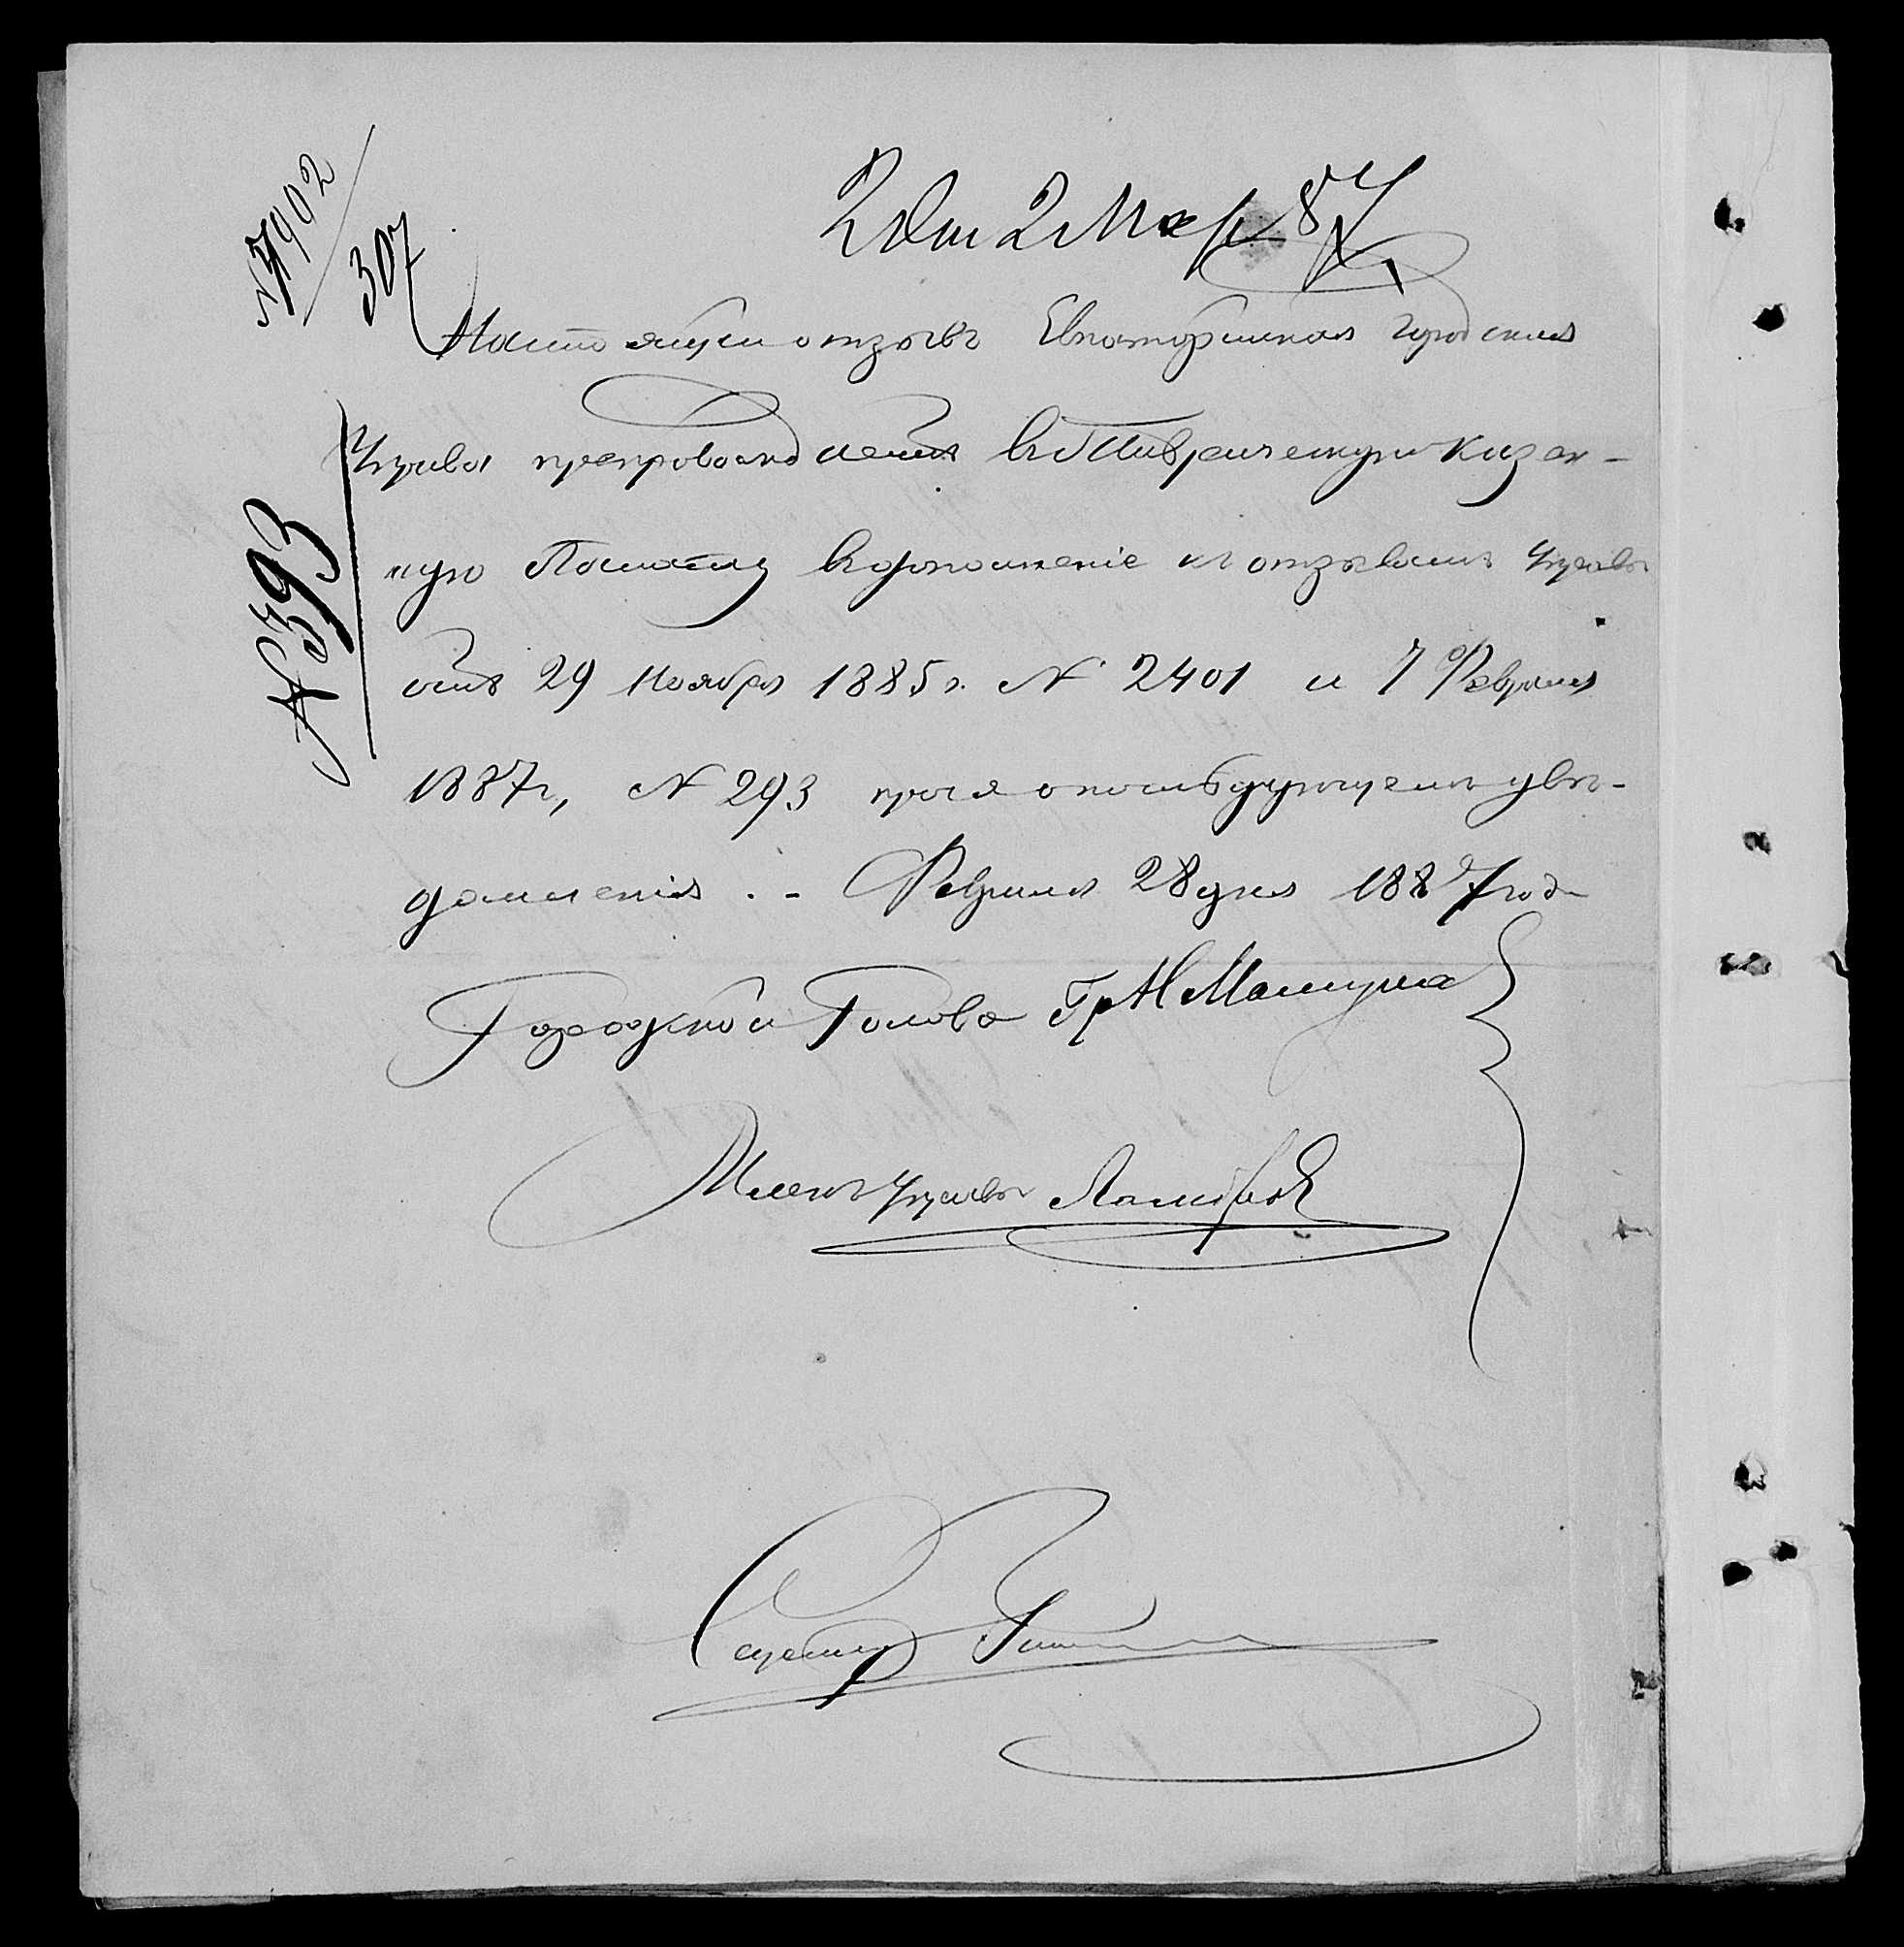 № 7902
307
2 Мар 87
Настоящій отзывъ Евпаторійская городская
Управа препровождаетъ въ Таврическую Казен-
ную Палату въ дополненіе къ отзывамъ Управы
отъ 29 Ноября 1885 г. № 2401 и 7 Февраля
1887 г., № 293 прося о послѣдующемъ увѣ-
домленія . - Февраля 28 дня 1887 года
№ 393
Городской Голова Гр. Н Мамуна
Членъ Управы
Секретарь